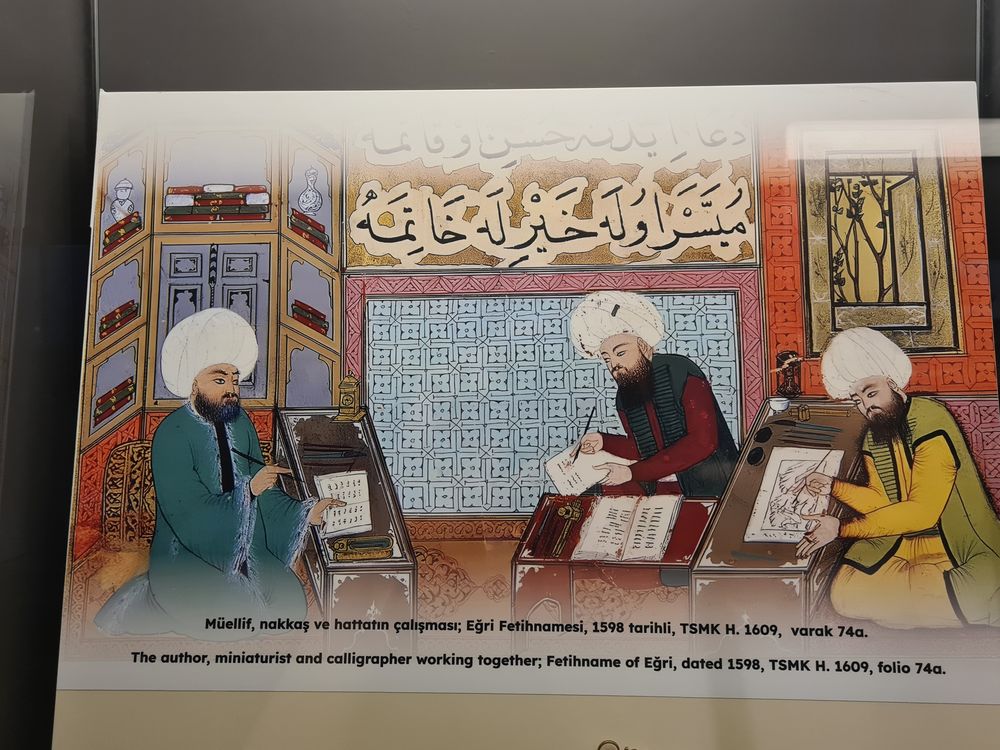 دعا ايدنه حسن
مُيَسَّر اوُلَه خَيْرِ لَه خَاتِمَهُ
Müellif, nakkaş ve hattatın çalışması; Eğri Fetihnamesi, 1598 tarihli, TSMK H. 1609, varak 74a.
The author, miniaturist and calligrapher working together; Fetihname of Eğri, dated 1598, TSMK H. 1609, folio 74a.